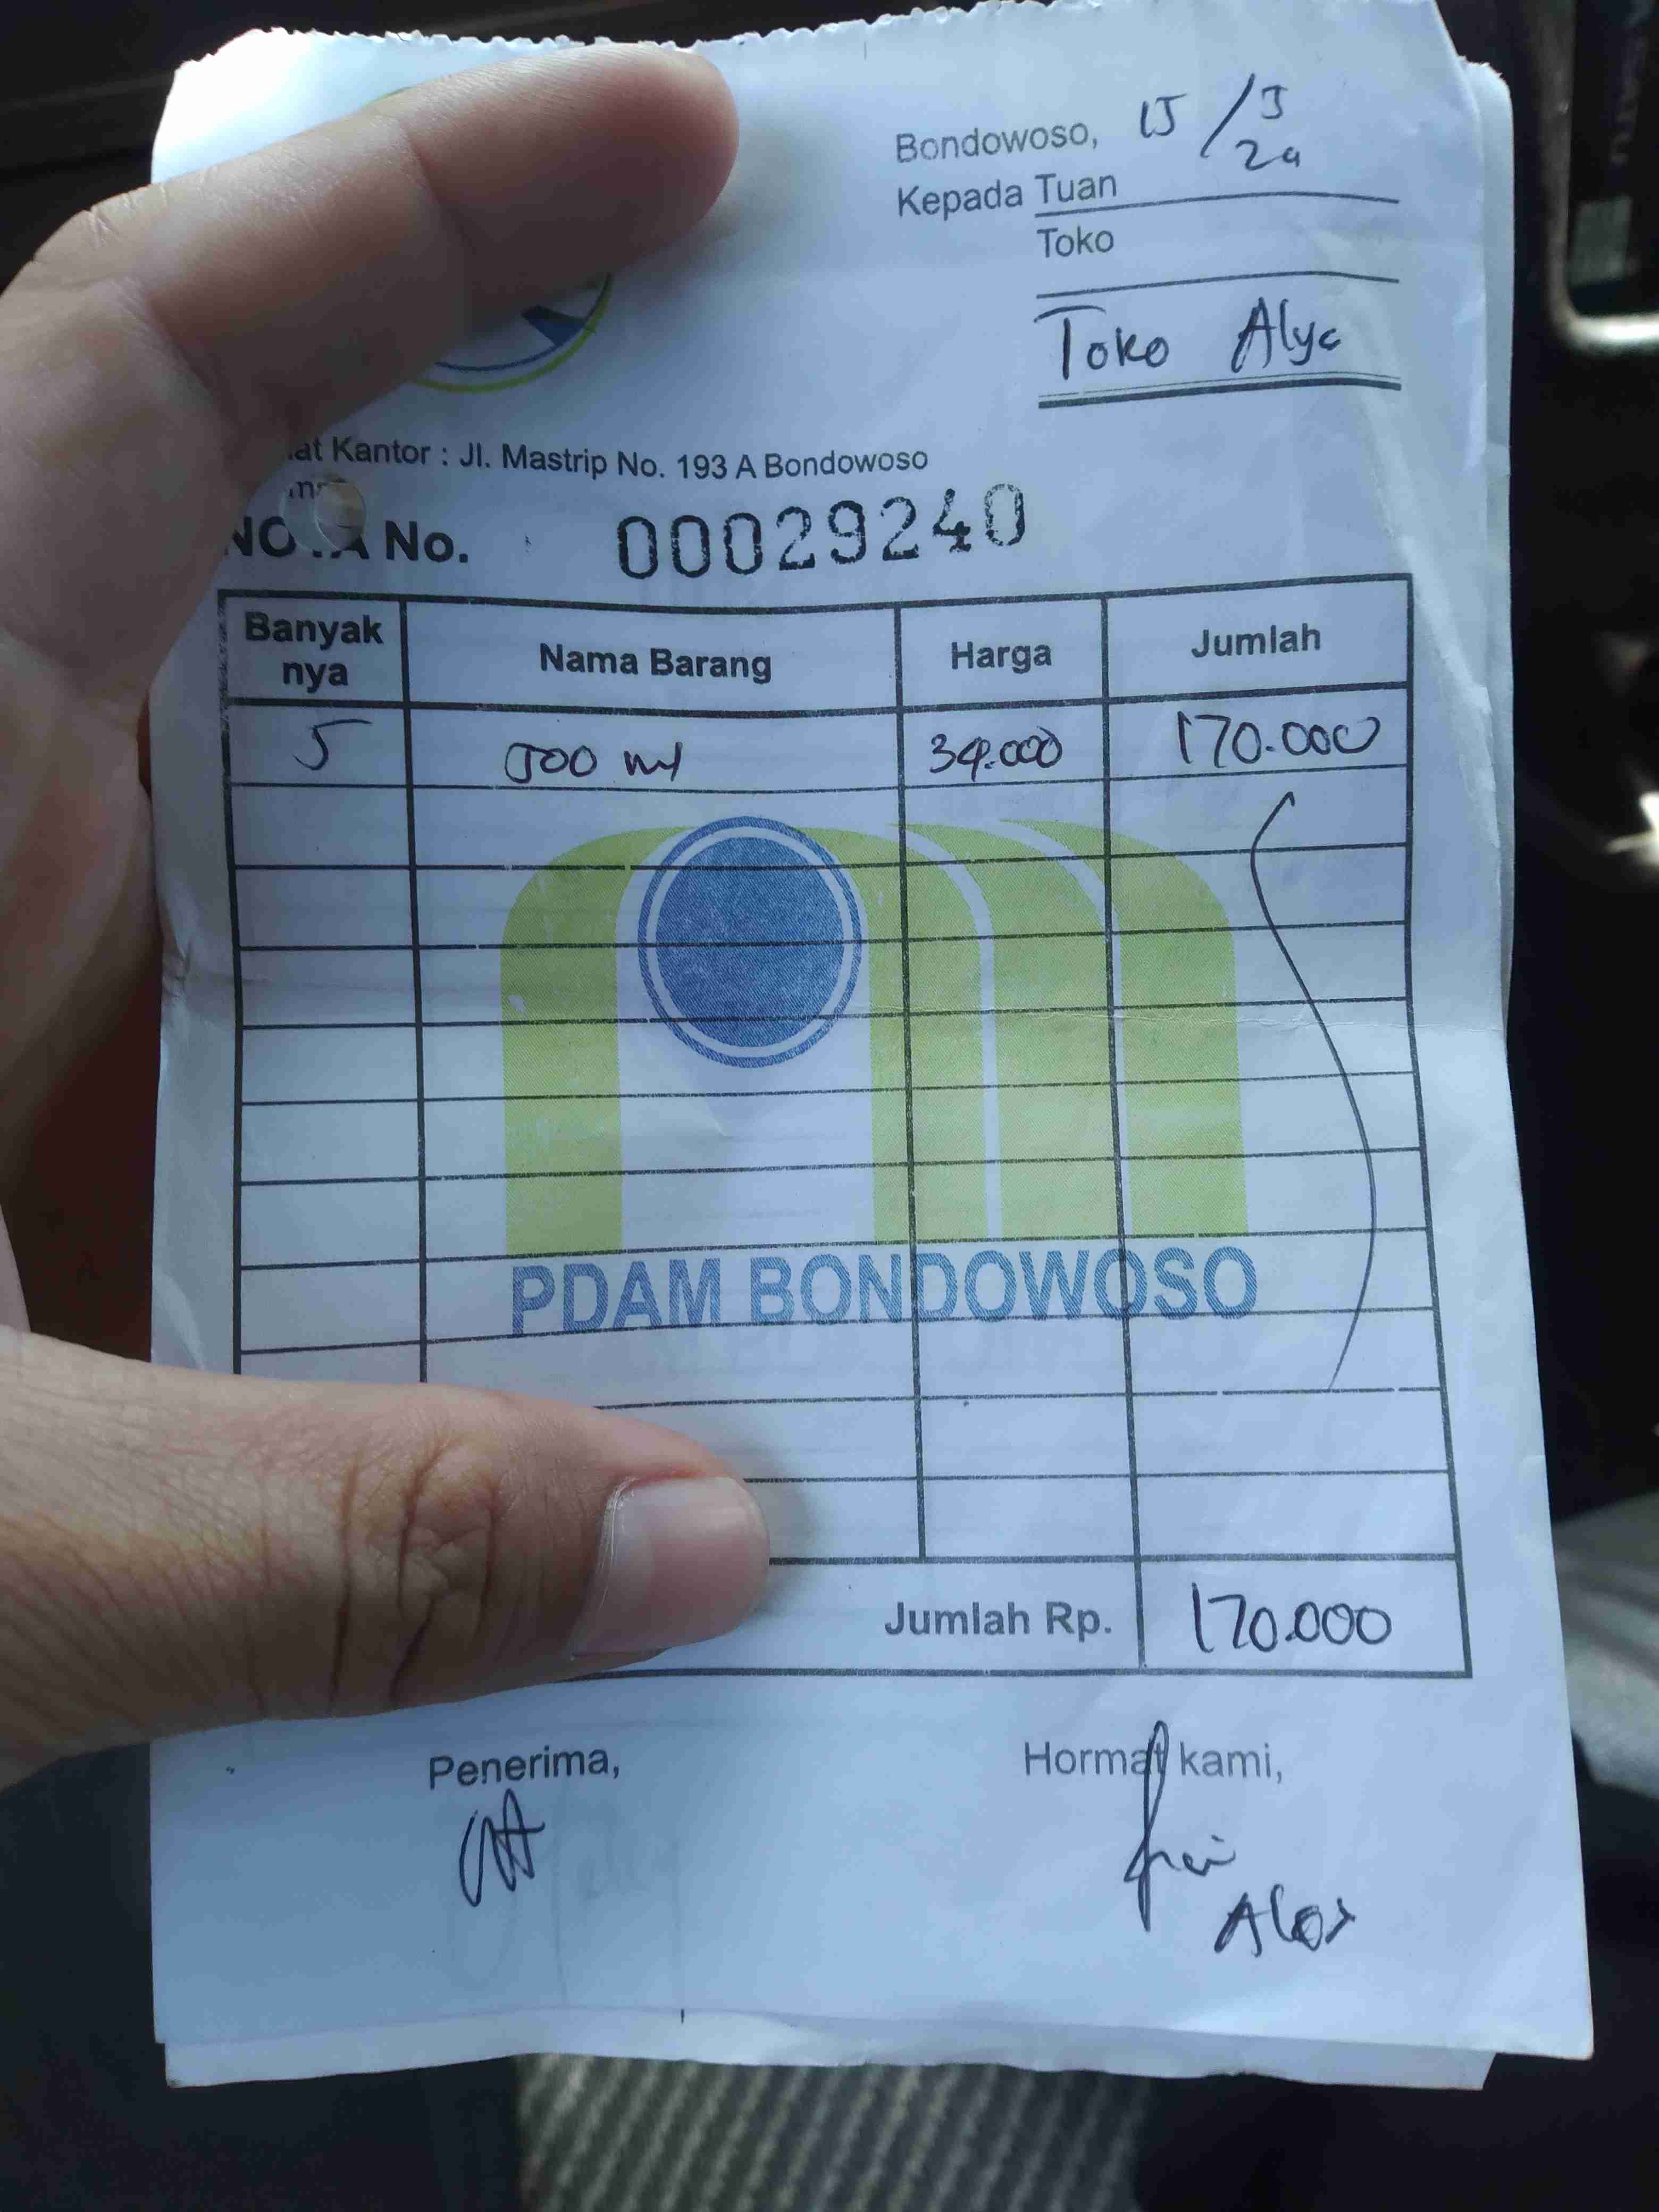 Bondowoso, 15/5
24
Kepada Tuan
Toko
Toko Alya
at Kantor : Jl. Mastrip No. 193 A Bondowoso
NOTA No. : 00029240
Banyak nya Nama Barang Harga Jumlah
5 500 ml 34.000 170.000
PDAM BONDOWOSO
Jumlah Rp. 170.000
Penerima, Hormat kami,